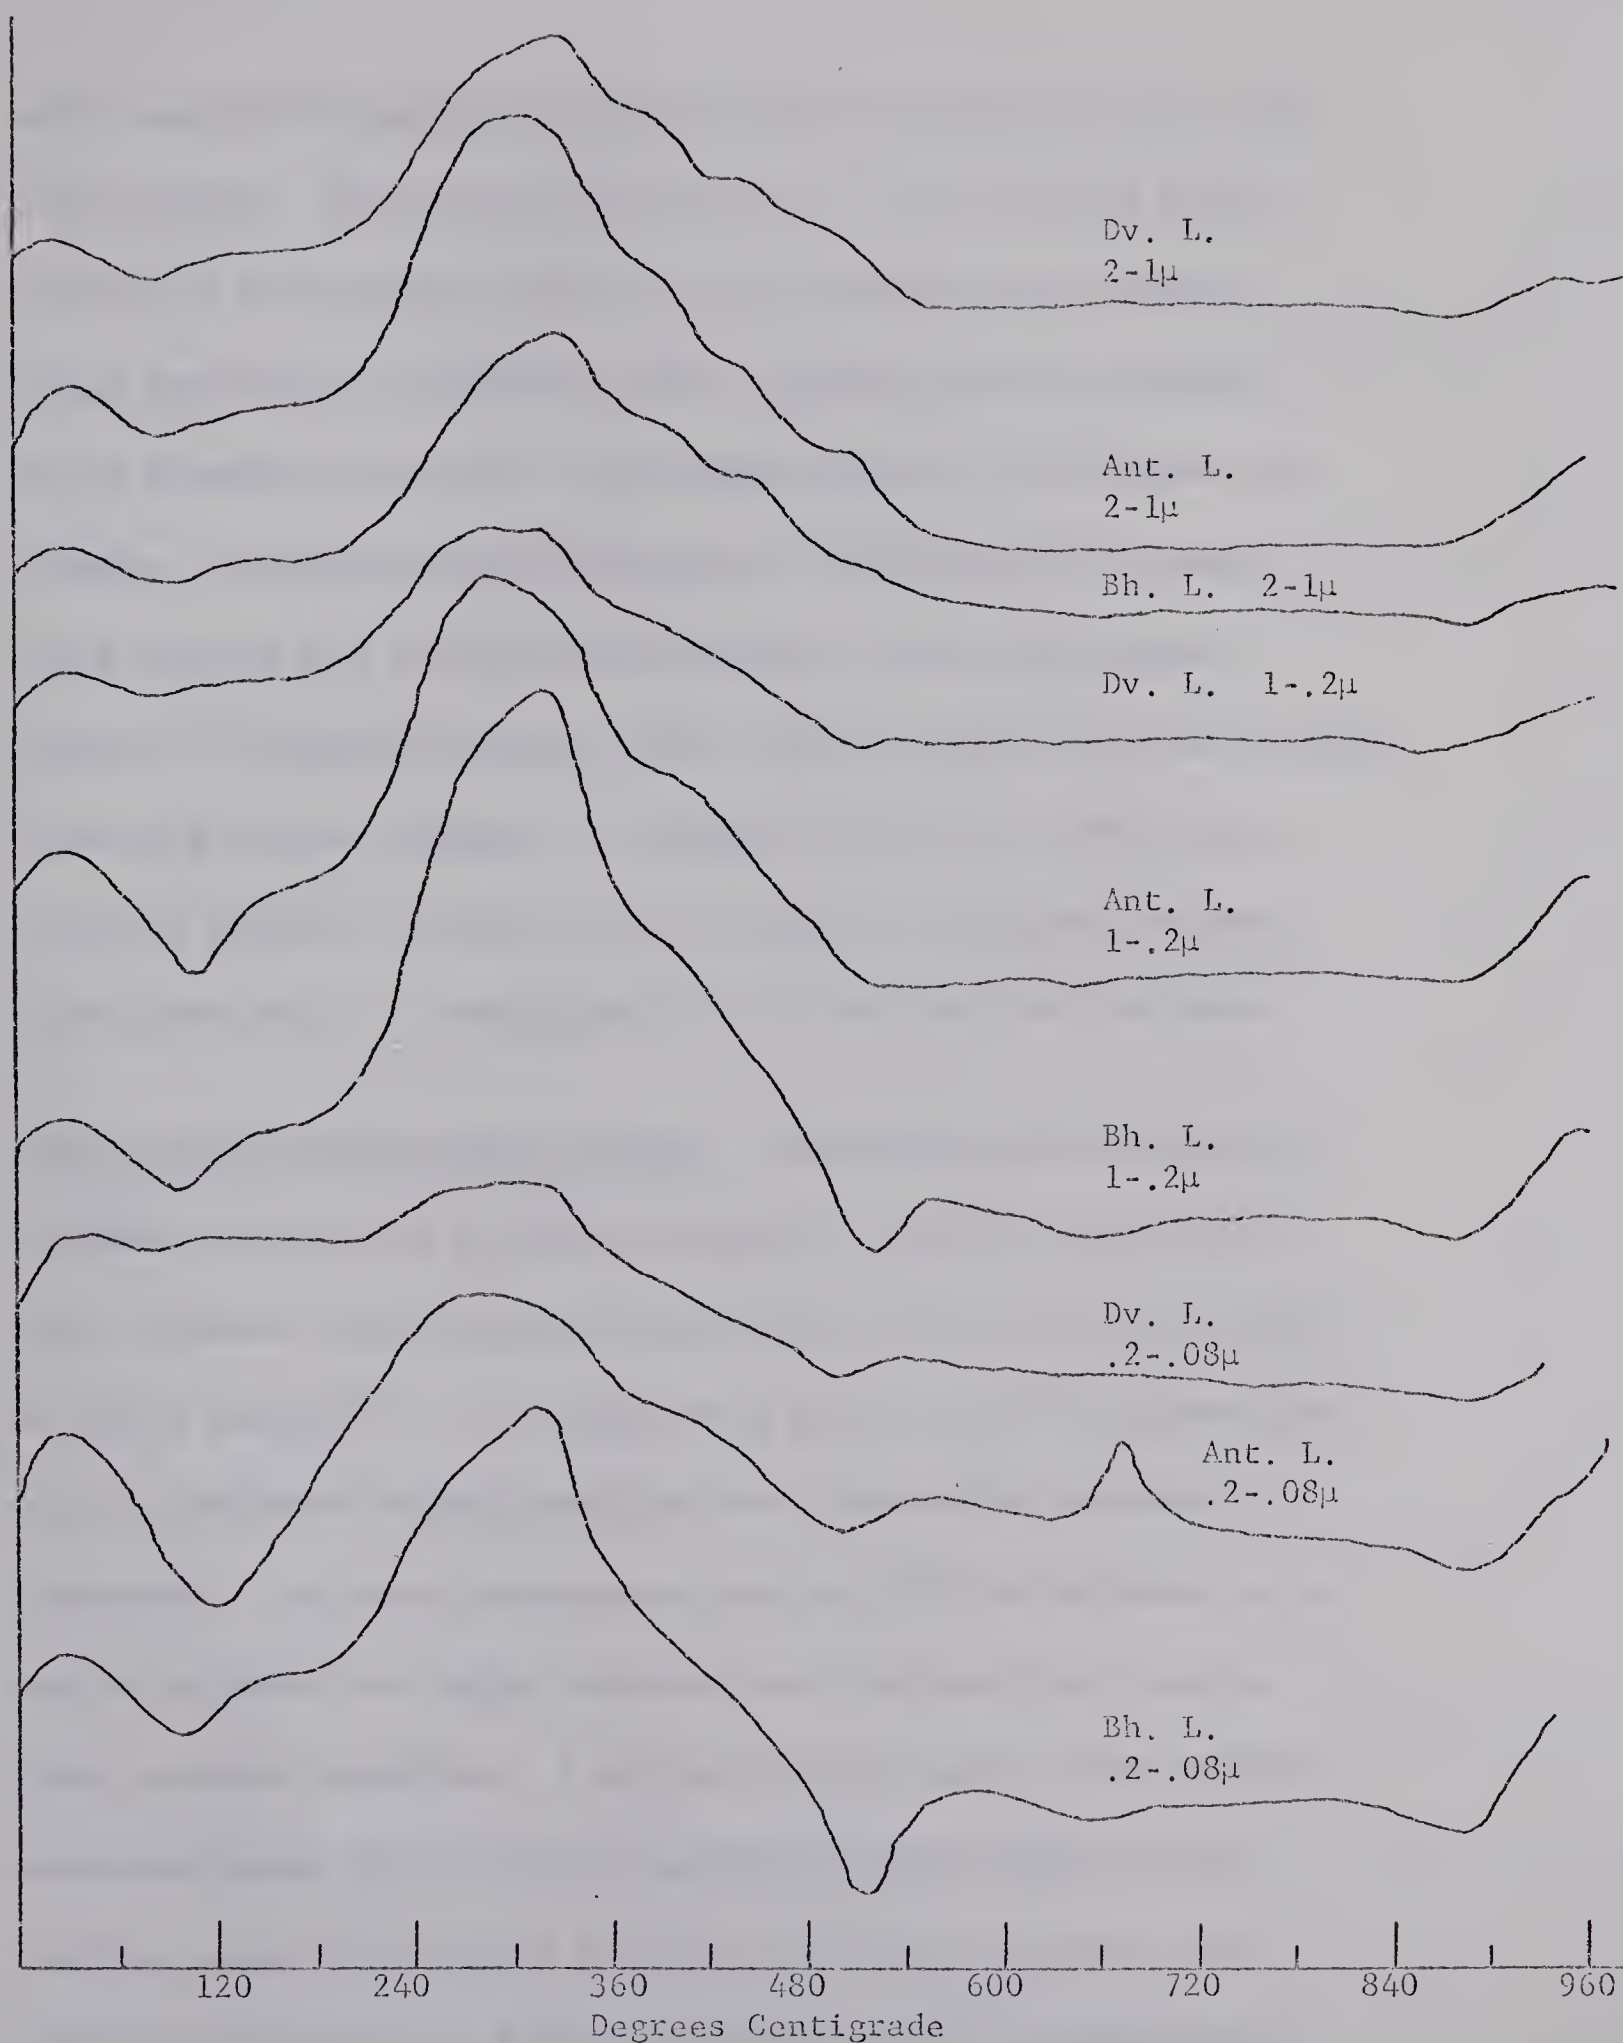 Dv. L.
2-1µ
Ant. L.
2-1µ
Bh. L. 2-1µ
Dv. L. 1-.2µ
Ant. L.
1-.2µ
Bh. L.
1-.2µ
Dv. L.
.2-.08µ
Ant. L.
.2-.08µ
Bh. L.
.2-.08µ
120 240 360 480 600 720 840 960
Degrees Centigrade